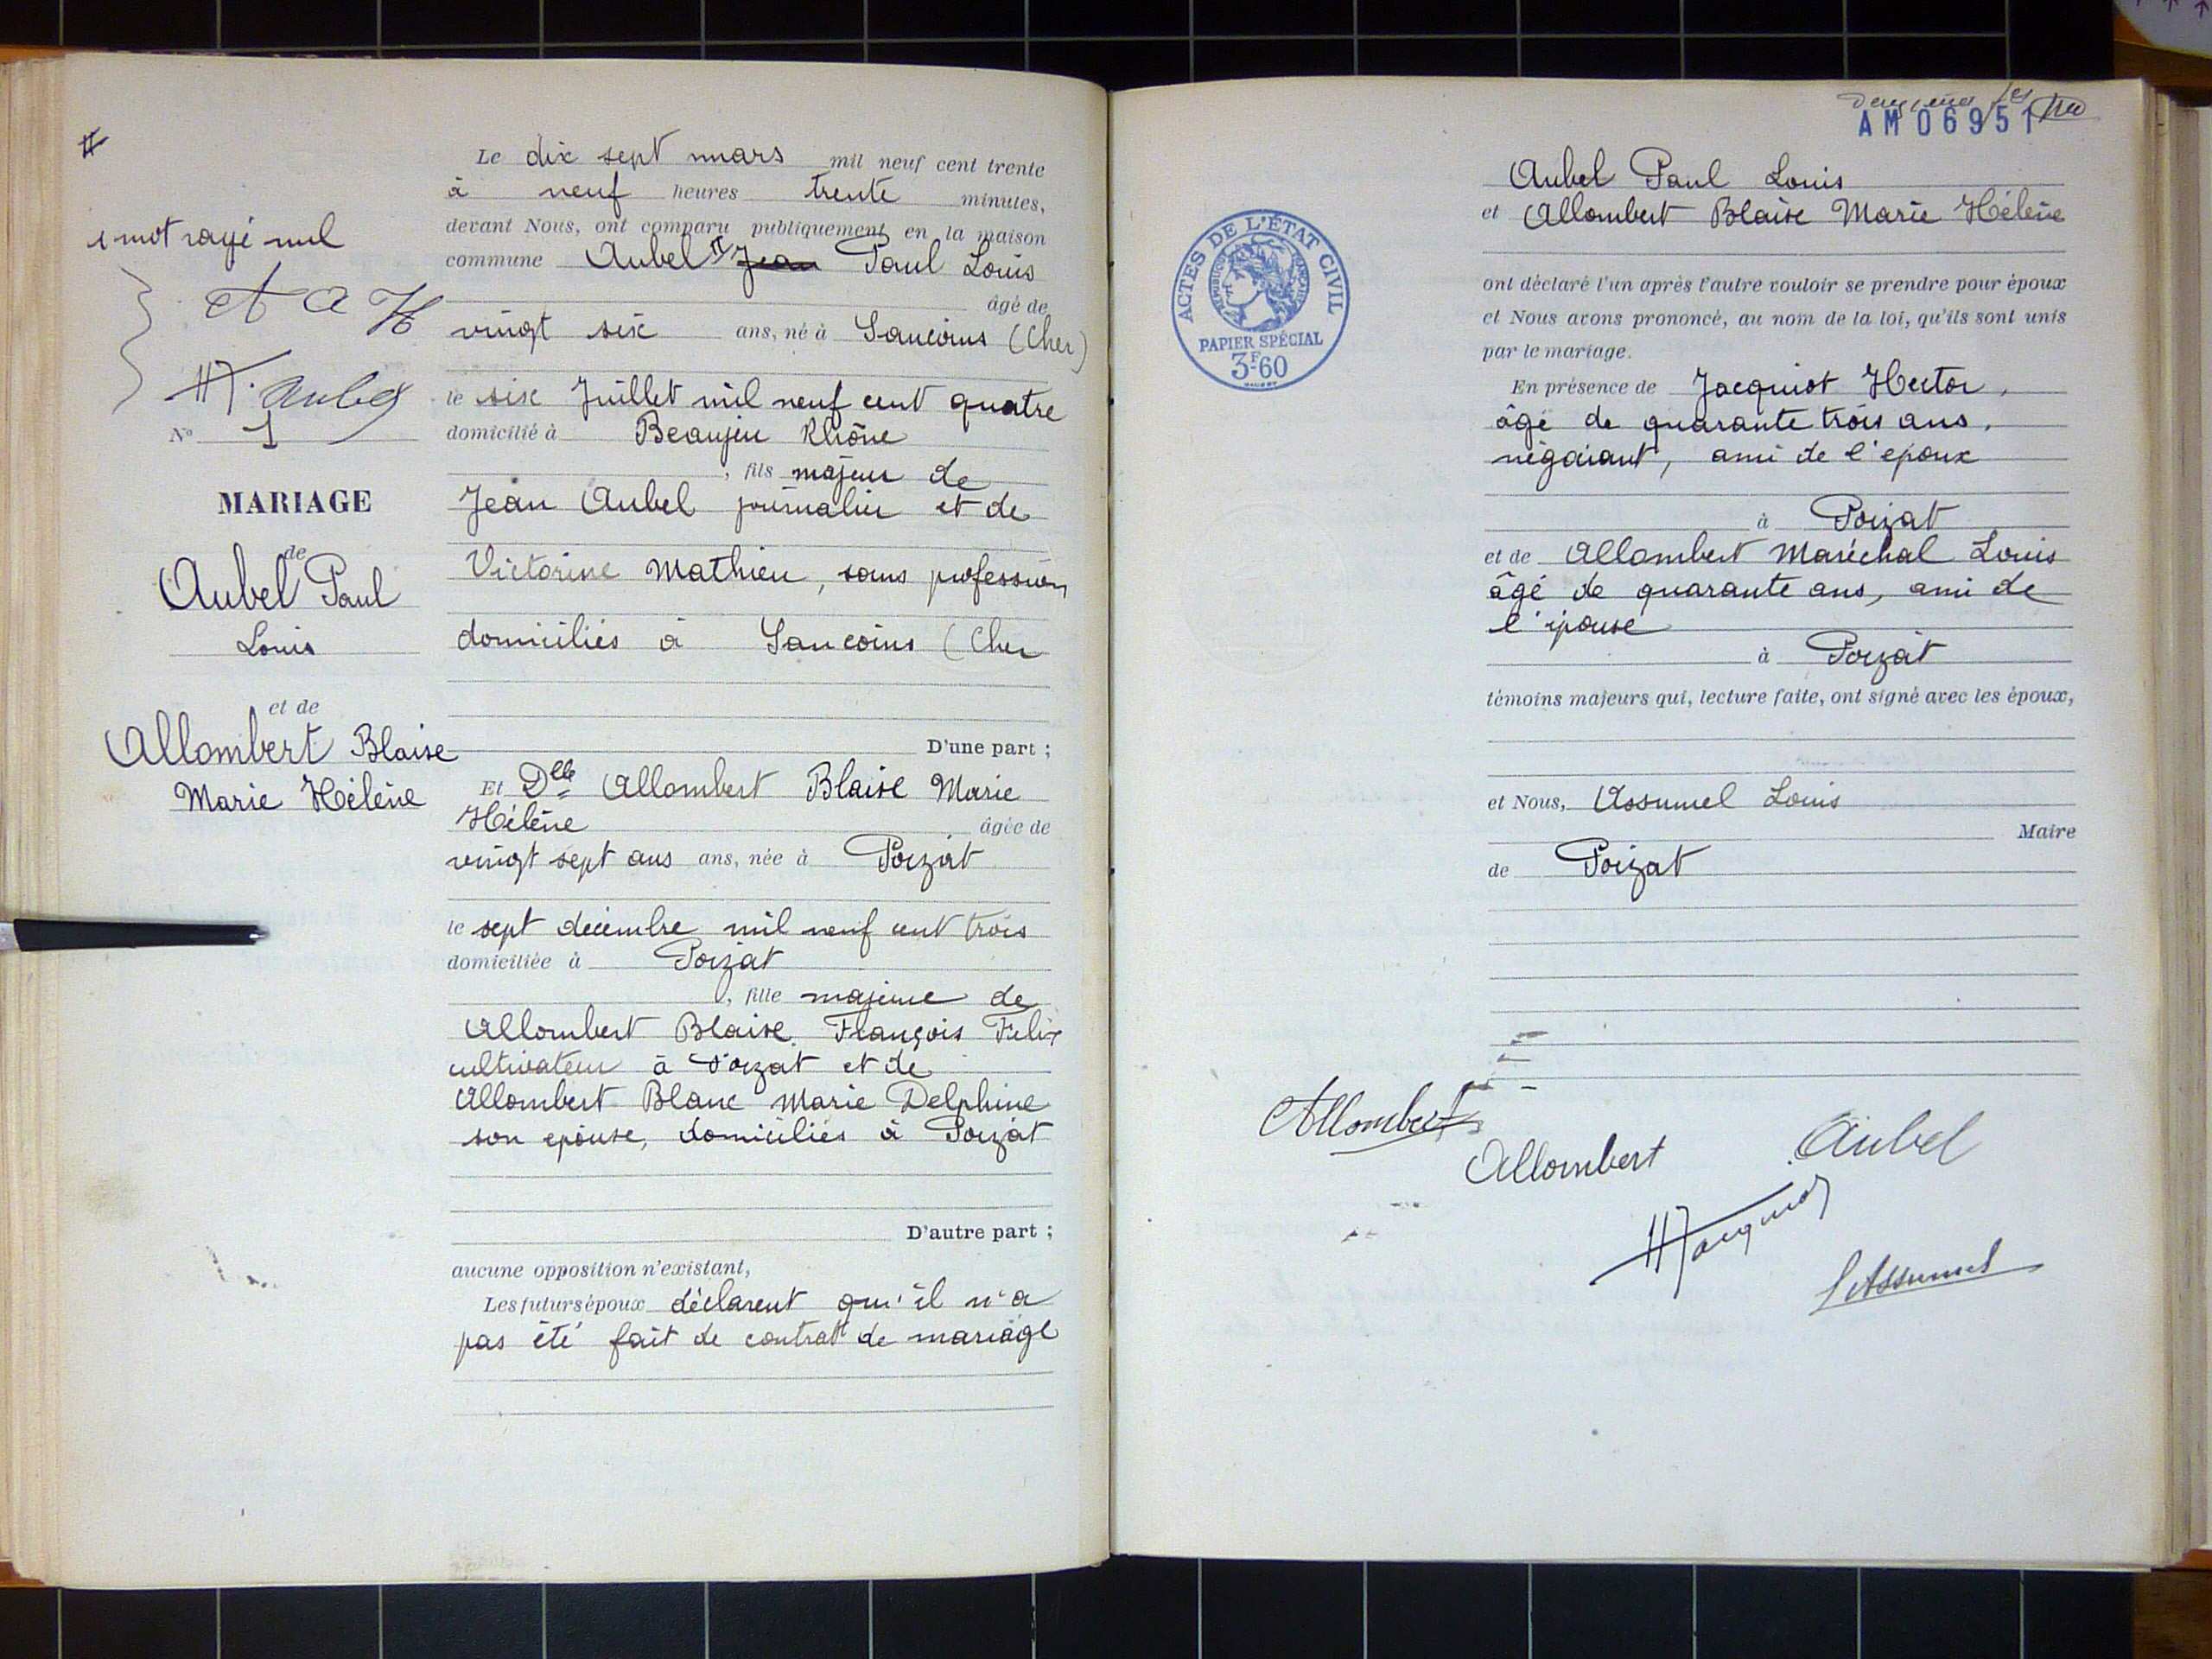 #
1 mot rayé nul
A a H
HJ. Aubel
N° 1
MARIAGE
de
Aubel Paul
Louis
et de
Allombert Blaise
Marie Hélène
Le dix sept mars mil neuf cent trente
à neuf heures trente minutes,
devant Nous, ont comparu publiquement en la maison
commune Aubel # Jean Paul Louis
âgé de
vingt six ans, né à Sancoins (Cher)
le six Juillet mil neuf cent quatre
domicilié à Beaujeu Rhône
, fils majeur de
Jean Aubel journalier et de
Victorine Mathieu, sans profession
domiciliés à Sancoins (Cher
D'une part ;
Et Dlle Allombert Blaise Marie
Hélène âgée de
vingt sept ans ans, née à Poizat
le sept décembre mil neuf cent trois
domiciliée à Poizat
, fille majeure de
Allombert Blaise François Felix
cultivateur à Poizat et de
Allombert Blanc Marie Delphine
son epouse, domiciliés à Poizat
D'autre part ;
aucune opposition n'existant,
Les futurs époux déclarent qu'il n'a
pas été fait de contrat de mariage
AM06951
ACTES DE L'ÉTAT CIVIL
RÉPUBLIQUE FRANÇAISE
PAPIER SPÉCIAL
3F60
Aubel Paul Louis
et Allombert Blaise Marie Hélène
ont déclaré l'un après l'autre vouloir se prendre pour époux
et Nous avons prononcé, au nom de la loi, qu'ils sont unis
par le mariage.
En présence de Jacquiot Hector,
âgé de quarante trois ans,
négociant, ami de l'époux
à Poizat
et de Allombert Maréchal Louis
âgé de quarante ans, ami de
l'épouse
à Poizat
témoins majeurs qui, lecture faite, ont signé avec les époux,
et Nous, Assumel Louis
Maire
de Poizat
Allombert
Allombert Aubel
HJacquiot
LAssumel